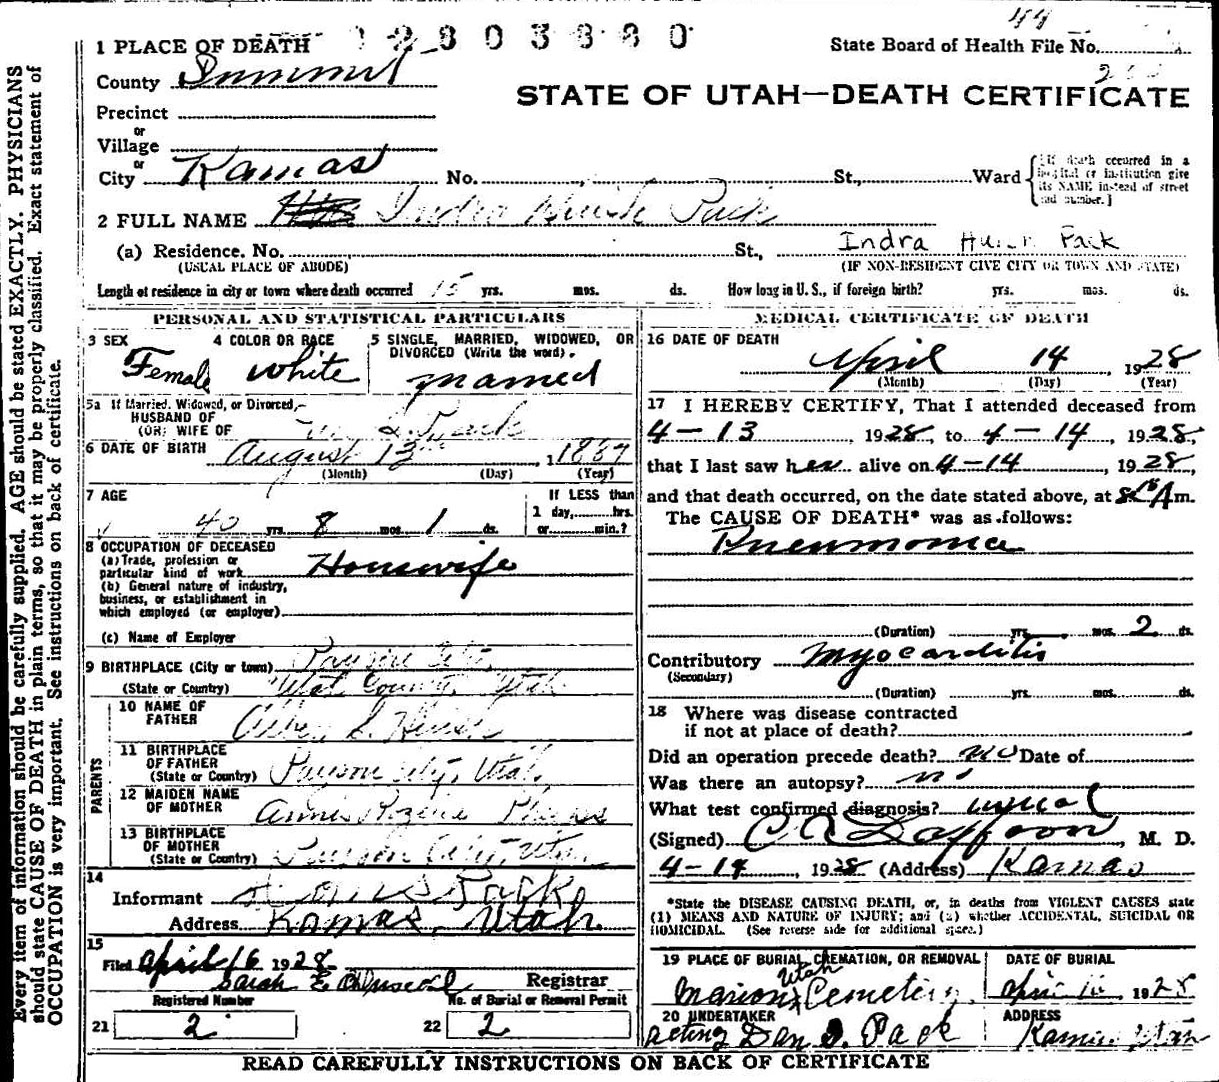 44
2803880
1 PLACE OF DEATH
State Board of Health File No.
County Summit
STATE OF UTAH—DEATH CERTIFICATE
Precinct
or
Village
or
City Kamas No. St., Ward
{If death occurred in a
hospital or institution give
its NAME instead of street
and number.}
2 FULL NAME Indra Huish Pack
(a) Residence. No. St., Indra Huish Pack
(USUAL PLACE OF ABODE) (IF NON-RESIDENT GIVE CITY OR TOWN AND STATE)
Length of residence in city or town where death occurred 15 yrs. mos. ds. How long in U. S., if foreign birth? yrs. mos. ds.
PERSONAL AND STATISTICAL PARTICULARS
3 SEX 4 COLOR OR RACE 5 SINGLE, MARRIED, WIDOWED, OR
DIVORCED (Write the word).
Female White Married
5a If Married, Widowed, or Divorced,
HUSBAND OF
(OR) WIFE OF Pack
6 DATE OF BIRTH August 13 1887
(Month) (Day) (Year)
7 AGE If LESS than
1 day, hrs.
40 yrs. 8 mos. 1 ds. or min.?
8 OCCUPATION OF DECEASED
(a) Trade, profession or
particular kind of work Housewife
(b) General nature of industry,
business, or establishment in
which employed (or employer)
(c) Name of Employer
9 BIRTHPLACE (City or town) Payson City
(State or Country) Utah County, Utah
PARENTS
10 NAME OF
FATHER S. Huish
11 BIRTHPLACE
OF FATHER
(State or Country) Payson City, Utah
12 MAIDEN NAME
OF MOTHER
13 BIRTHPLACE
OF MOTHER
(State or Country) Payson City, Utah
14
Informant Pack
Address Kamas, Utah
15
Filed April 16 1928
Sarah E. Registrar
Registered Number No. of Burial or Removal Permit
21 2 22 2
MEDICAL CERTIFICATE OF DEATH
16 DATE OF DEATH
April 14, 1928
(Month) (Day) (Year)
17 I HEREBY CERTIFY, That I attended deceased from
4-13 1928, to 4-14, 1928,
that I last saw her alive on 4-14, 1928,
and that death occurred, on the date stated above, at 8 15 Am.
The CAUSE OF DEATH* was as follows:
Pneumonia
(Duration) yrs. mos. 2 ds.
Contributory Myocarditis
(Secondary)
(Duration) yrs. mos. ds.
18 Where was disease contracted
if not at place of death?
Did an operation precede death? no Date of
Was there an autopsy? no
What test confirmed diagnosis?
(Signed) M. D.
4-14, 1928 (Address) Kamas
*State the DISEASE CAUSING DEATH, or, in deaths from VIOLENT CAUSES state
(1) MEANS AND NATURE OF INJURY; and (2) whether ACCIDENTAL, SUICIDAL OR
HOMICIDAL. (See reverse side for additional space.)
19 PLACE OF BURIAL, CREMATION, OR REMOVAL DATE OF BURIAL
Utah
Marion Cemetery, April 16 1928
20 UNDERTAKER ADDRESS
acting Dan O. Pack Kamas Utah
READ CAREFULLY INSTRUCTIONS ON BACK OF CERTIFICATE
Every item of information should be carefully supplied. AGE should be stated EXACTLY. PHYSICIANS
should state CAUSE OF DEATH in plain terms, so that it may be properly classified. Exact statement of
OCCUPATION is very important. See instructions on back of certificate.